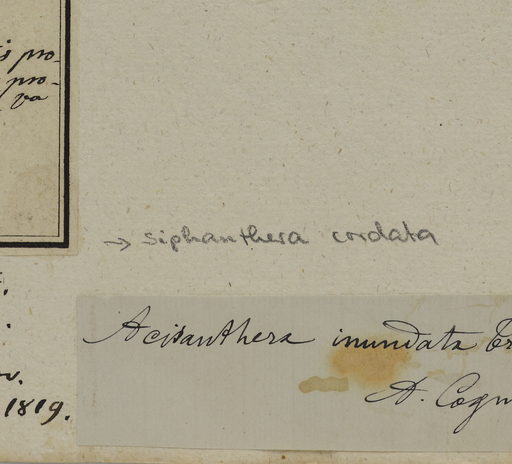 is pro-
pro-
va
→ Siphanthera cordata
Acisanthera inundata Tr
A. Cogn
1819.